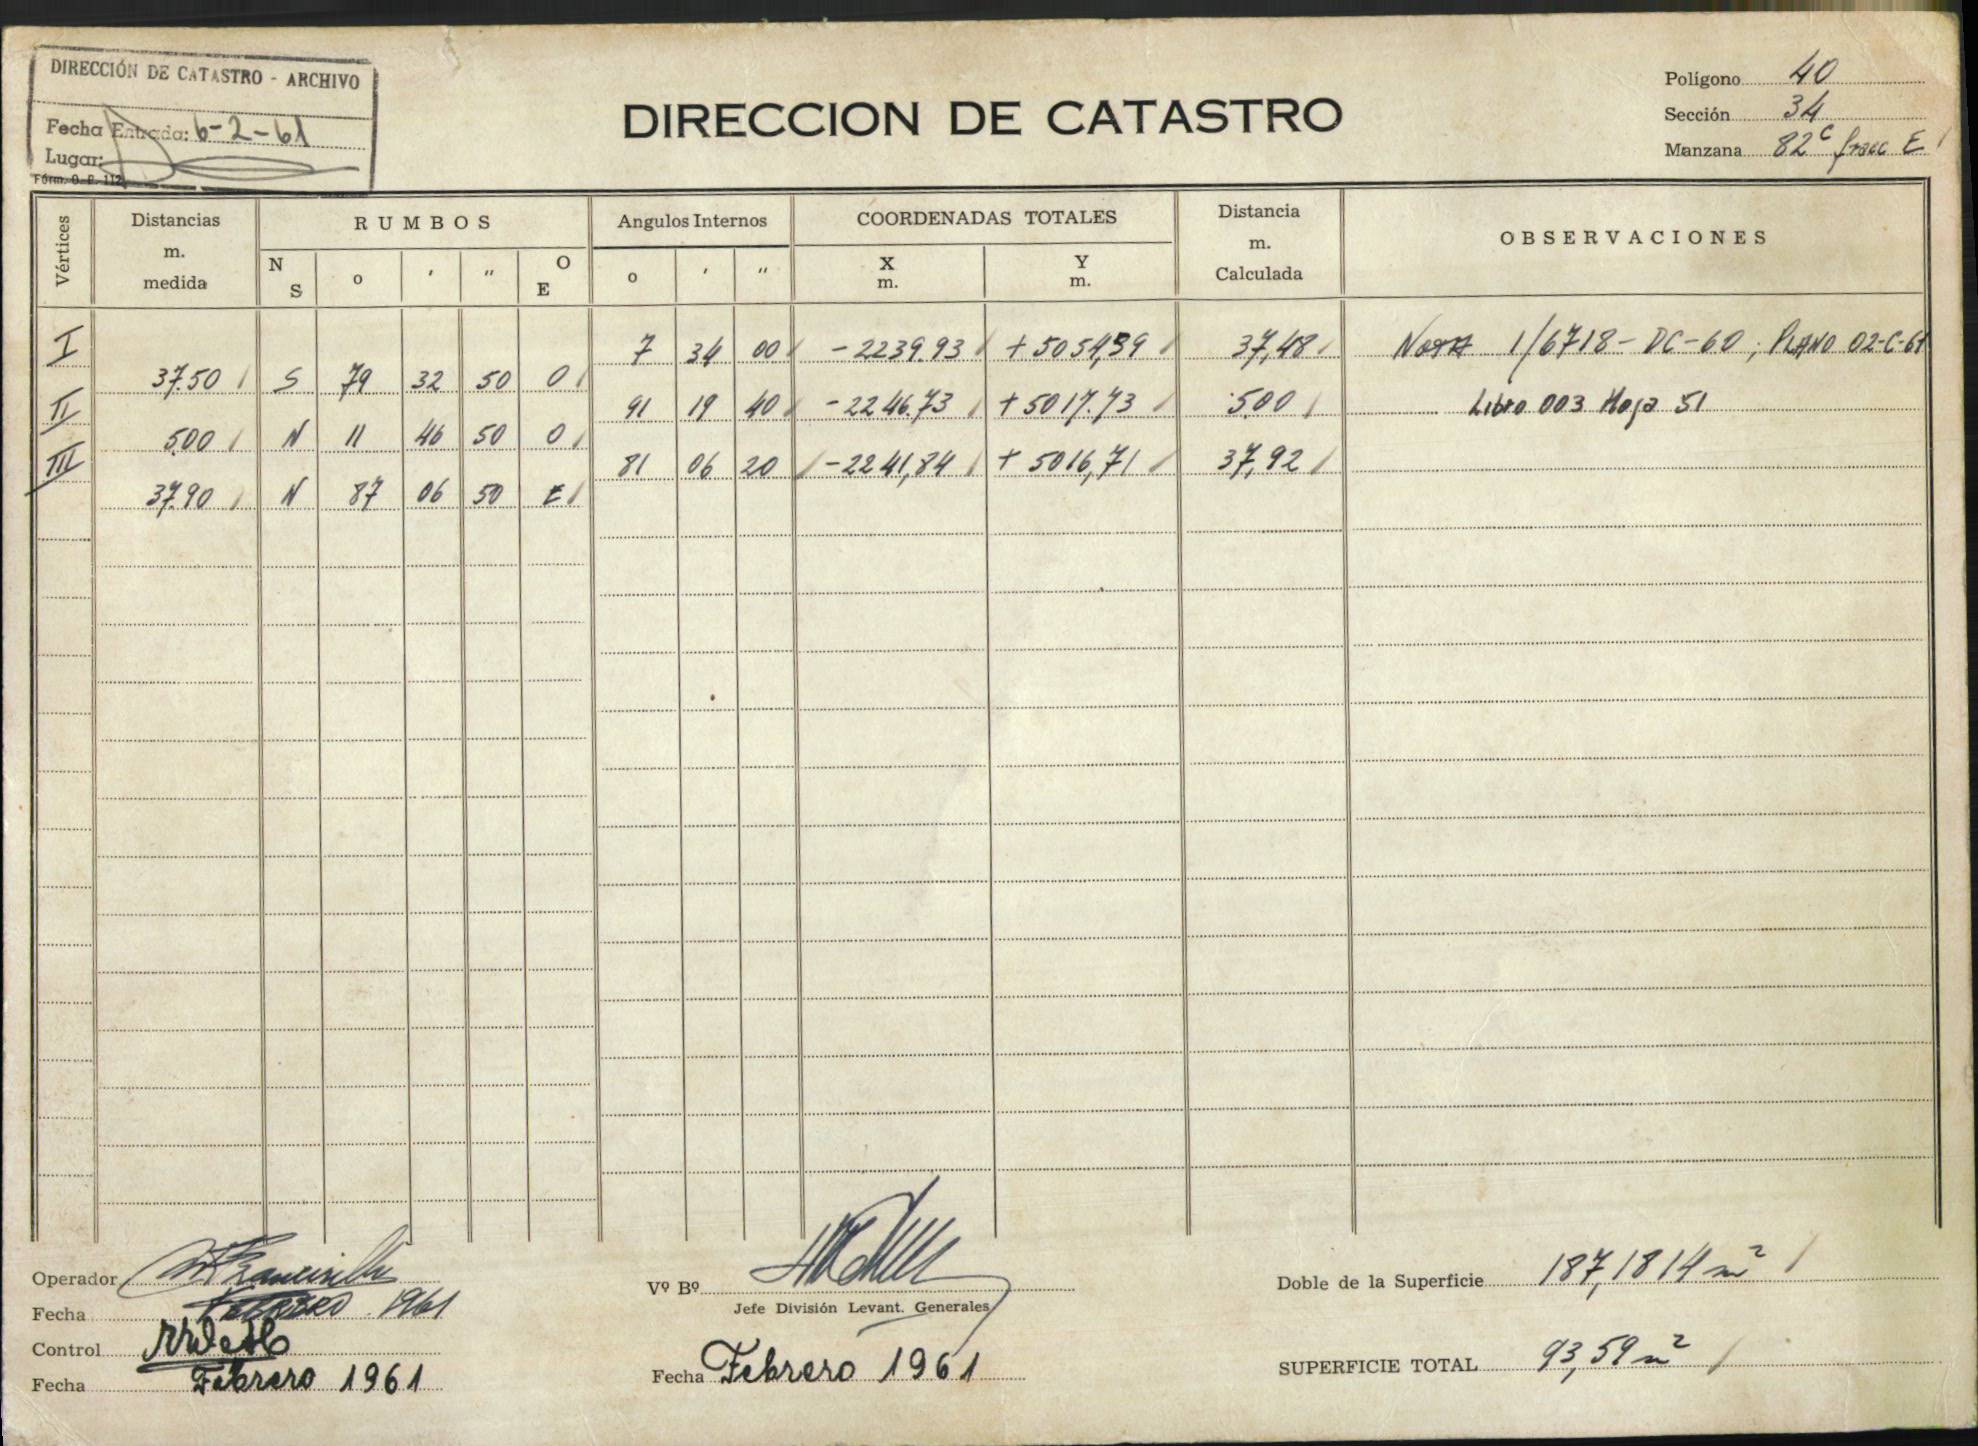 DIRECCIÓN DE CATASTRO - ARCHIVO
Fecha Entrada: 6-2-61
Lugar:
Fórm. O. P. 112
DIRECCION DE CATASTRO
Polígono 40
Sección 34
Manzana 82c fracc E
Vértices
Distancias m. medida
RUMBOS
Angulos Internos
COORDENADAS TOTALES
Distancia m. Calculada
OBSERVACIONES
N S o ' " O E
o ' "
X m.
Y m.
I 7 34 00 -2239.93 +5054,59 37,48 Nota 1/6718-DC-60; PLANO 02-C-61
37.50 S 79 32 50 O
II 91 19 40 -2246.73 +5017.73 5.00 Libro 003 Hoja 51
5.00 N 11 46 50 O
III 81 06 20 -2241,84 +5016,71 37,92
37.90 N 87 06 50 E
Operador
Fecha Febrero 1961
Control
Fecha Febrero 1961
Vº Bº
Jefe División Levant. Generales
Fecha Febrero 1961
Doble de la Superficie 187,1814 m²
SUPERFICIE TOTAL 93,59 m²